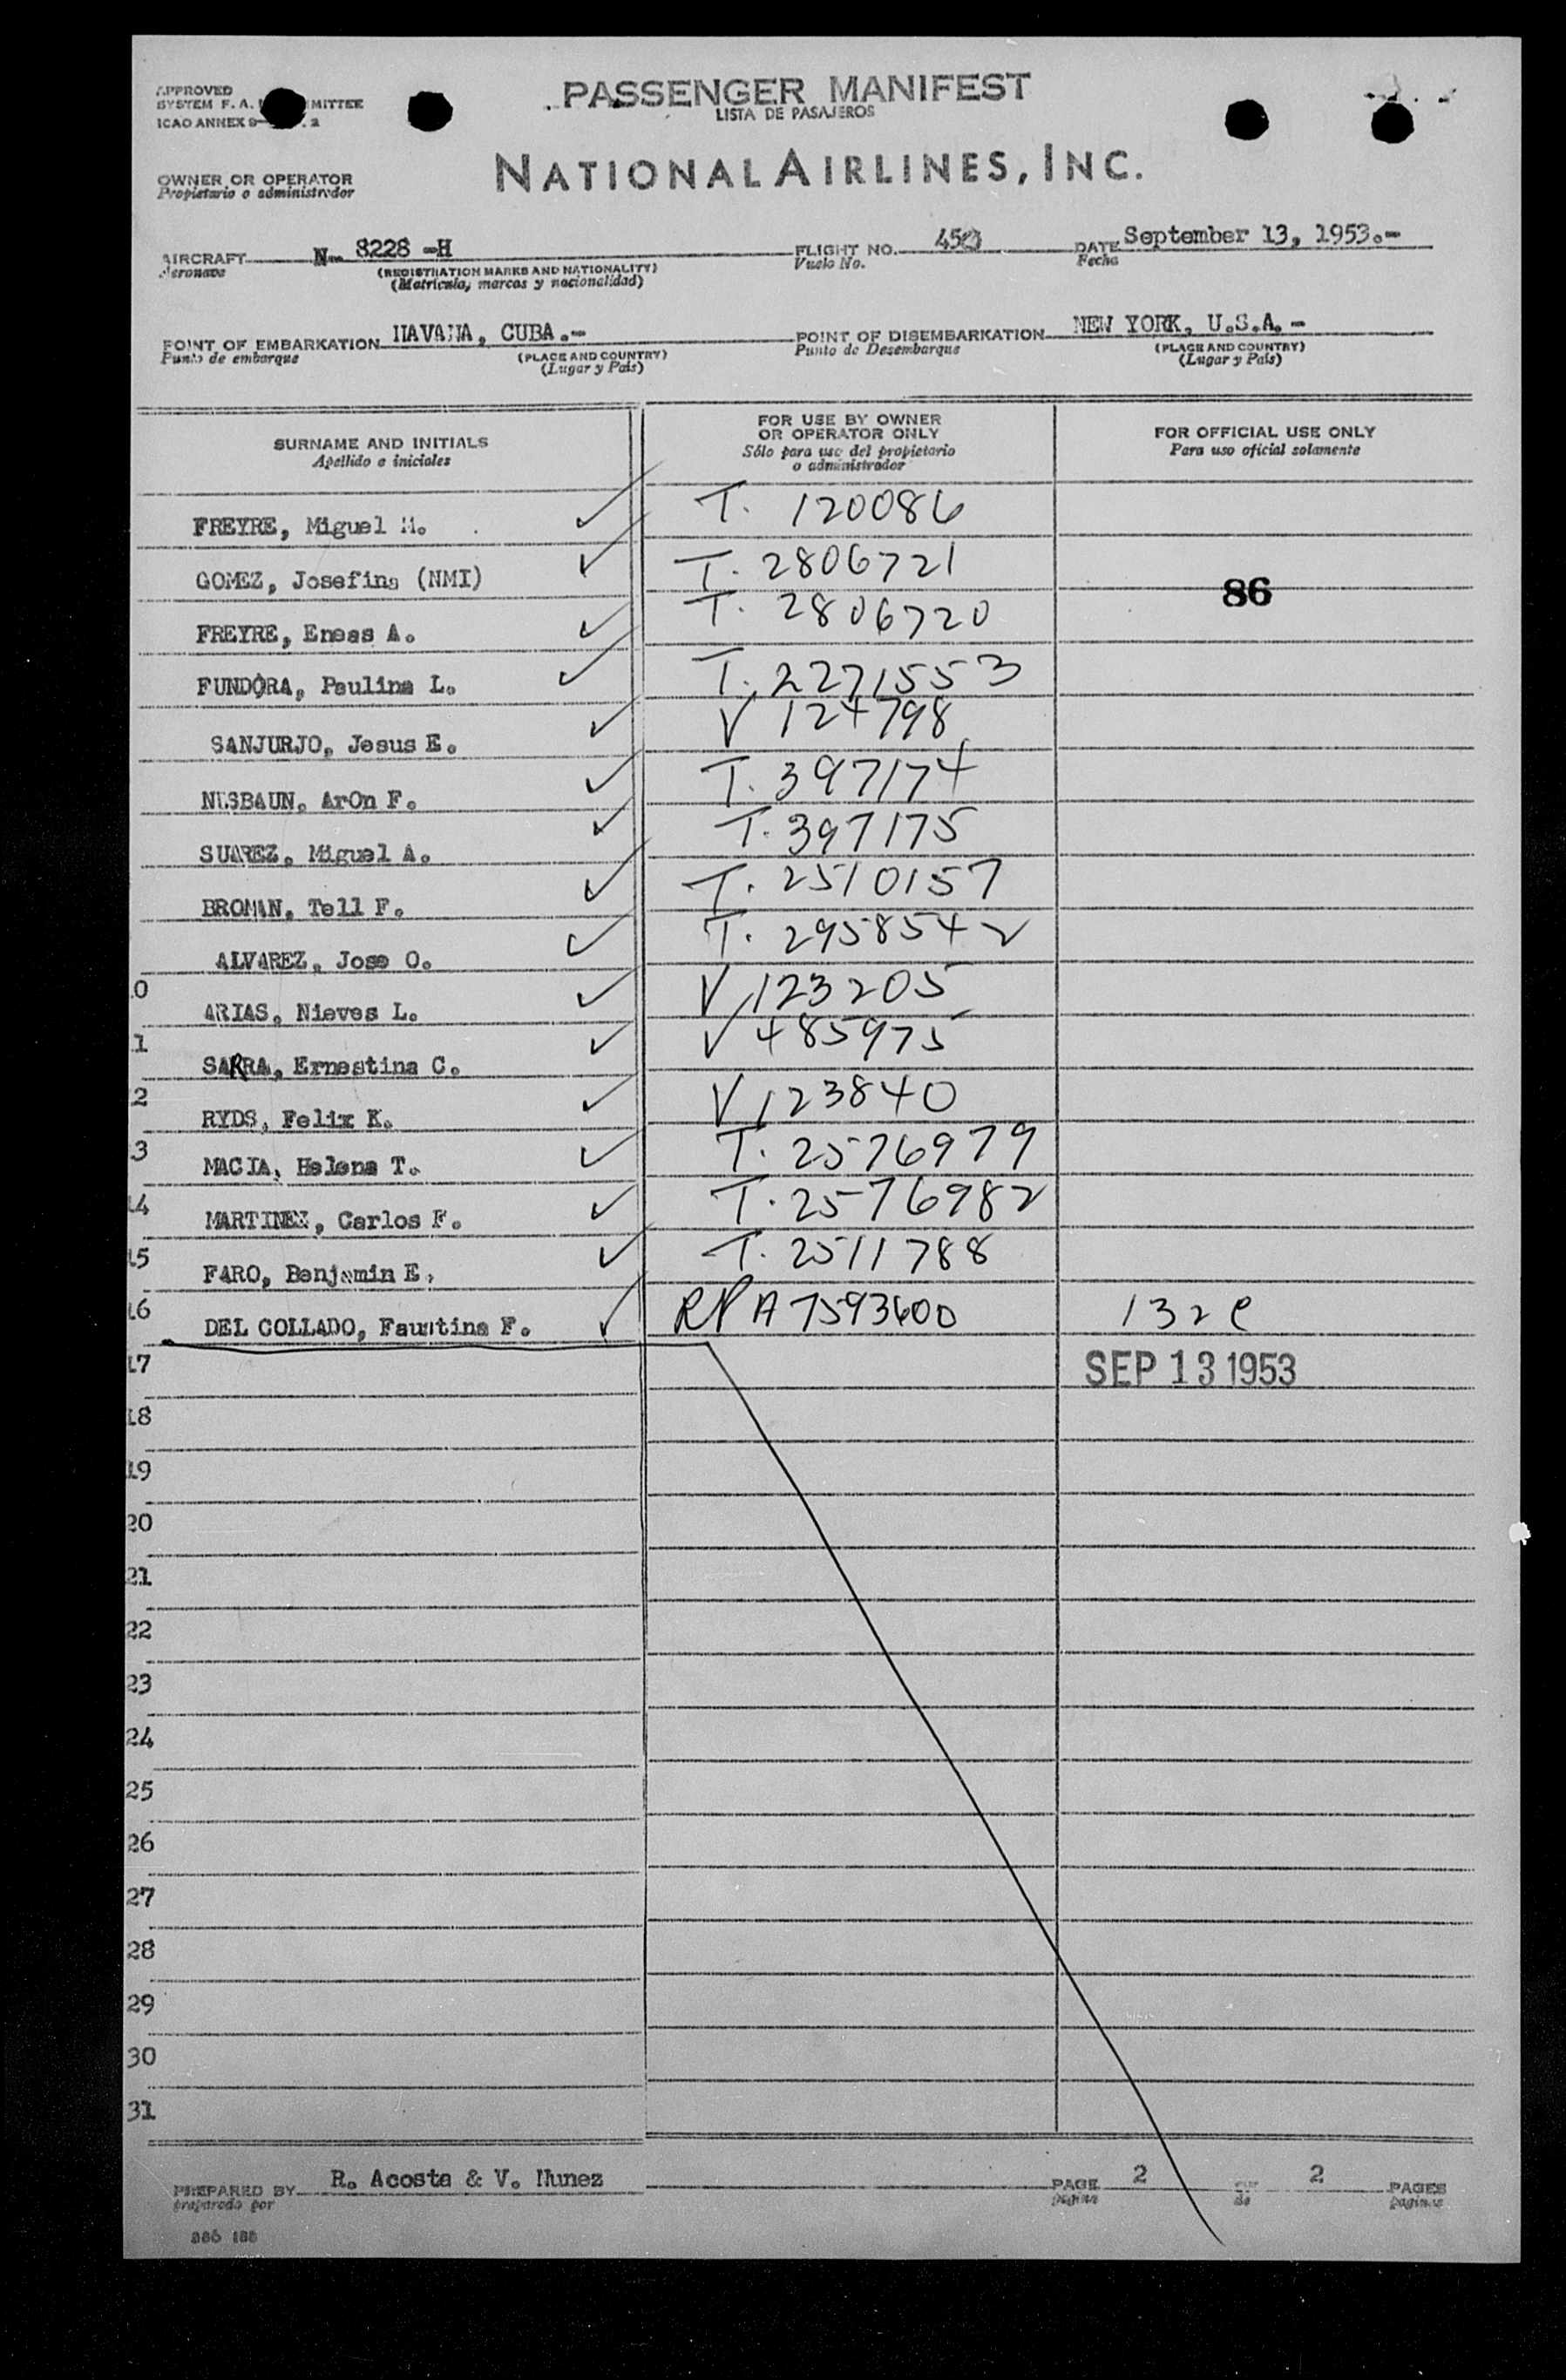 APPROVED
SYSTEM F. A. MITTEE
ICAO ANNEX 9- 2
PASSENGER MANIFEST
LISTA DE PASAJEROS
OWNER OR OPERATOR
Propietario o administrador
NATIONAL AIRLINES, INC.
AIRCRAFT N- 8228 -H FLIGHT NO. DATE September 13, 1953.-
Aeronave (REGISTRATION MARKS AND NATIONALITY) Vuelo No. Fecha
(Matricula, marcas y nacionalidad)
POINT OF EMBARKATION HAVANA, CUBA.- POINT OF DISEMBARKATION NEW YORK, U.S.A. -
Punto de embarque (PLACE AND COUNTRY) Punto de Desembarque (PLACE AND COUNTRY)
(Lugar y País) (Lugar y País)
SURNAME AND INITIALS
Apellido e iniciales
FOR USE BY OWNER
OR OPERATOR ONLY
Sólo para uso del propietario
o administrador
FOR OFFICIAL USE ONLY
Para uso oficial solamente
FREYRE, Miguel M. T. 120086
GOMEZ, Josefina (NMI) T. 2806721 86
FREYRE, Eneas A. T. 2806720
FUNDORA, Paulina L. T. 2271553
SANJURJO, Jesus E. V 124798
NUSBAUN, ArOn F. T. 397174
SUAREZ, Miguel A. T. 397175
BROMAN, Tell F. T. 2510157
ALVAREZ, Jose O. T. 2958542
0 ARIAS, Nieves L. V 123205
1 SARRA, Ernestina C. V 485975
2 RYDS, Felix K. V 123840
3 MACIA, Helena T. T. 2576979
14 MARTINEZ, Carlos F. T. 2576982
15 FARO, Benjamin E. T. 2511788
16 DEL COLLADO, Faustina F. RP A7593600 132 e
17 SEP 13 1953
18
19
20
21
22
23
24
25
26
27
28
29
30
31
PREPARED BY R. Acosta & V. Nunez PAGE 2 2 PAGES
preparado por página de paginas